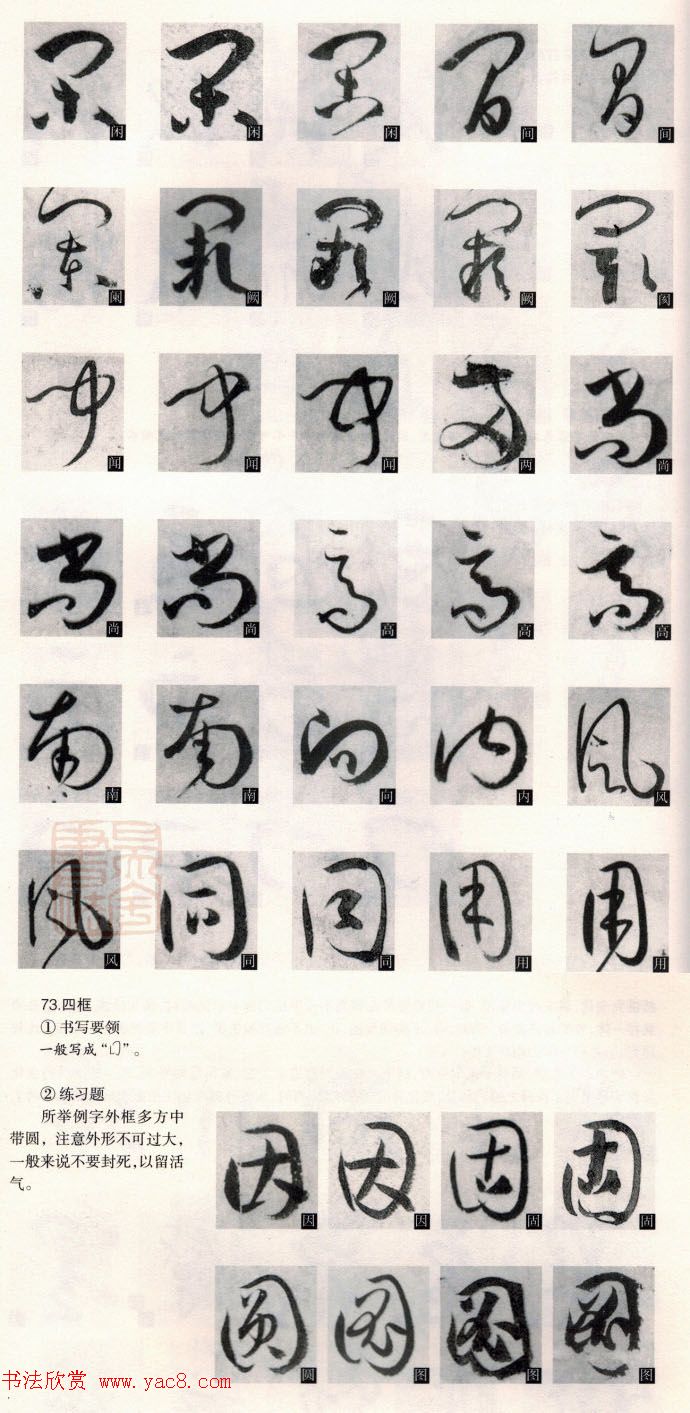 闲 闲 闲 间 间
阑 阙 阙 阙 阂
闻 闻 闻 两 尚
尚 尚 高 高 高
南 南 向 内 风
风 同 同 用 用
73.四框
①书写要领
一般写成“囗”。
②练习题
所举例字外框多方中
带圆，注意外形不可过大，
一般来说不要封死，以留活
气。
因 因 固 固
圆 图 图 图
书法欣赏 www.yac8.com